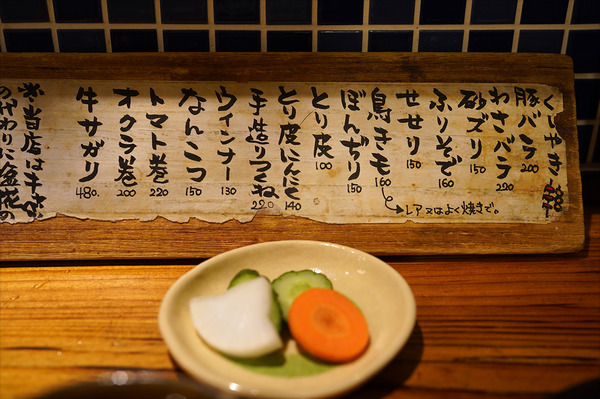 くしやき
豚バラ 200
わさバラ 220
砂ズリ 150
ふりそで 160
せせり 150
鳥きモ 160
レア又はよく焼きで。
ぼんぢり 150
とり皮 100
とり皮にんにく 140
手造りつくね 220
ウインナー 130
なんこつ 150
トマト巻 220
オクラ巻 200
牛サガリ 480.
当店はキャ
の代わりに